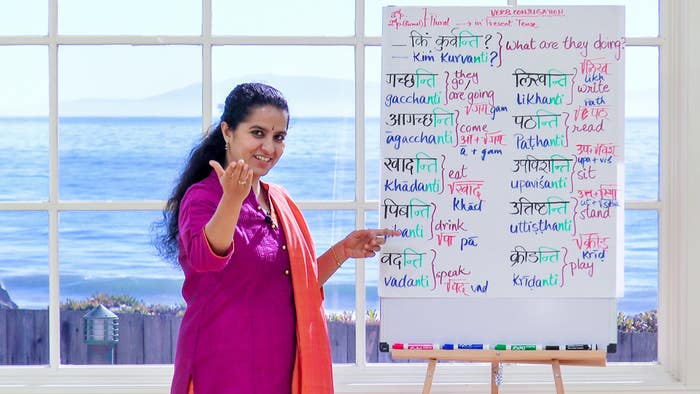 VERB CONJUGATION
Plural → in Present Tense
— किं कुर्वन्ति? } What are they doing?
— Kim Kurvanti?
गच्छन्ति } they go/ are going
gacchanti √गम् gam
आगच्छन्ति } come
āgacchanti आ + √गम् ā + gam
खादन्ति } eat
Khādanti √खाद् Khād
पिबन्ति } drink
pibanti √पा pā
वदन्ति } speak
vadanti √वद् vad
लिखन्ति } √लिख् likh
likhanti write
पठन्ति } √पठ् path
Pathanti read
उपविशन्ति } उप+√विश् upa+viś
upaviśanti sit
उत्तिष्ठन्ति }
uttiṣṭhanti stand
क्रीडन्ति } √क्रीड् krīd
krīdanti play